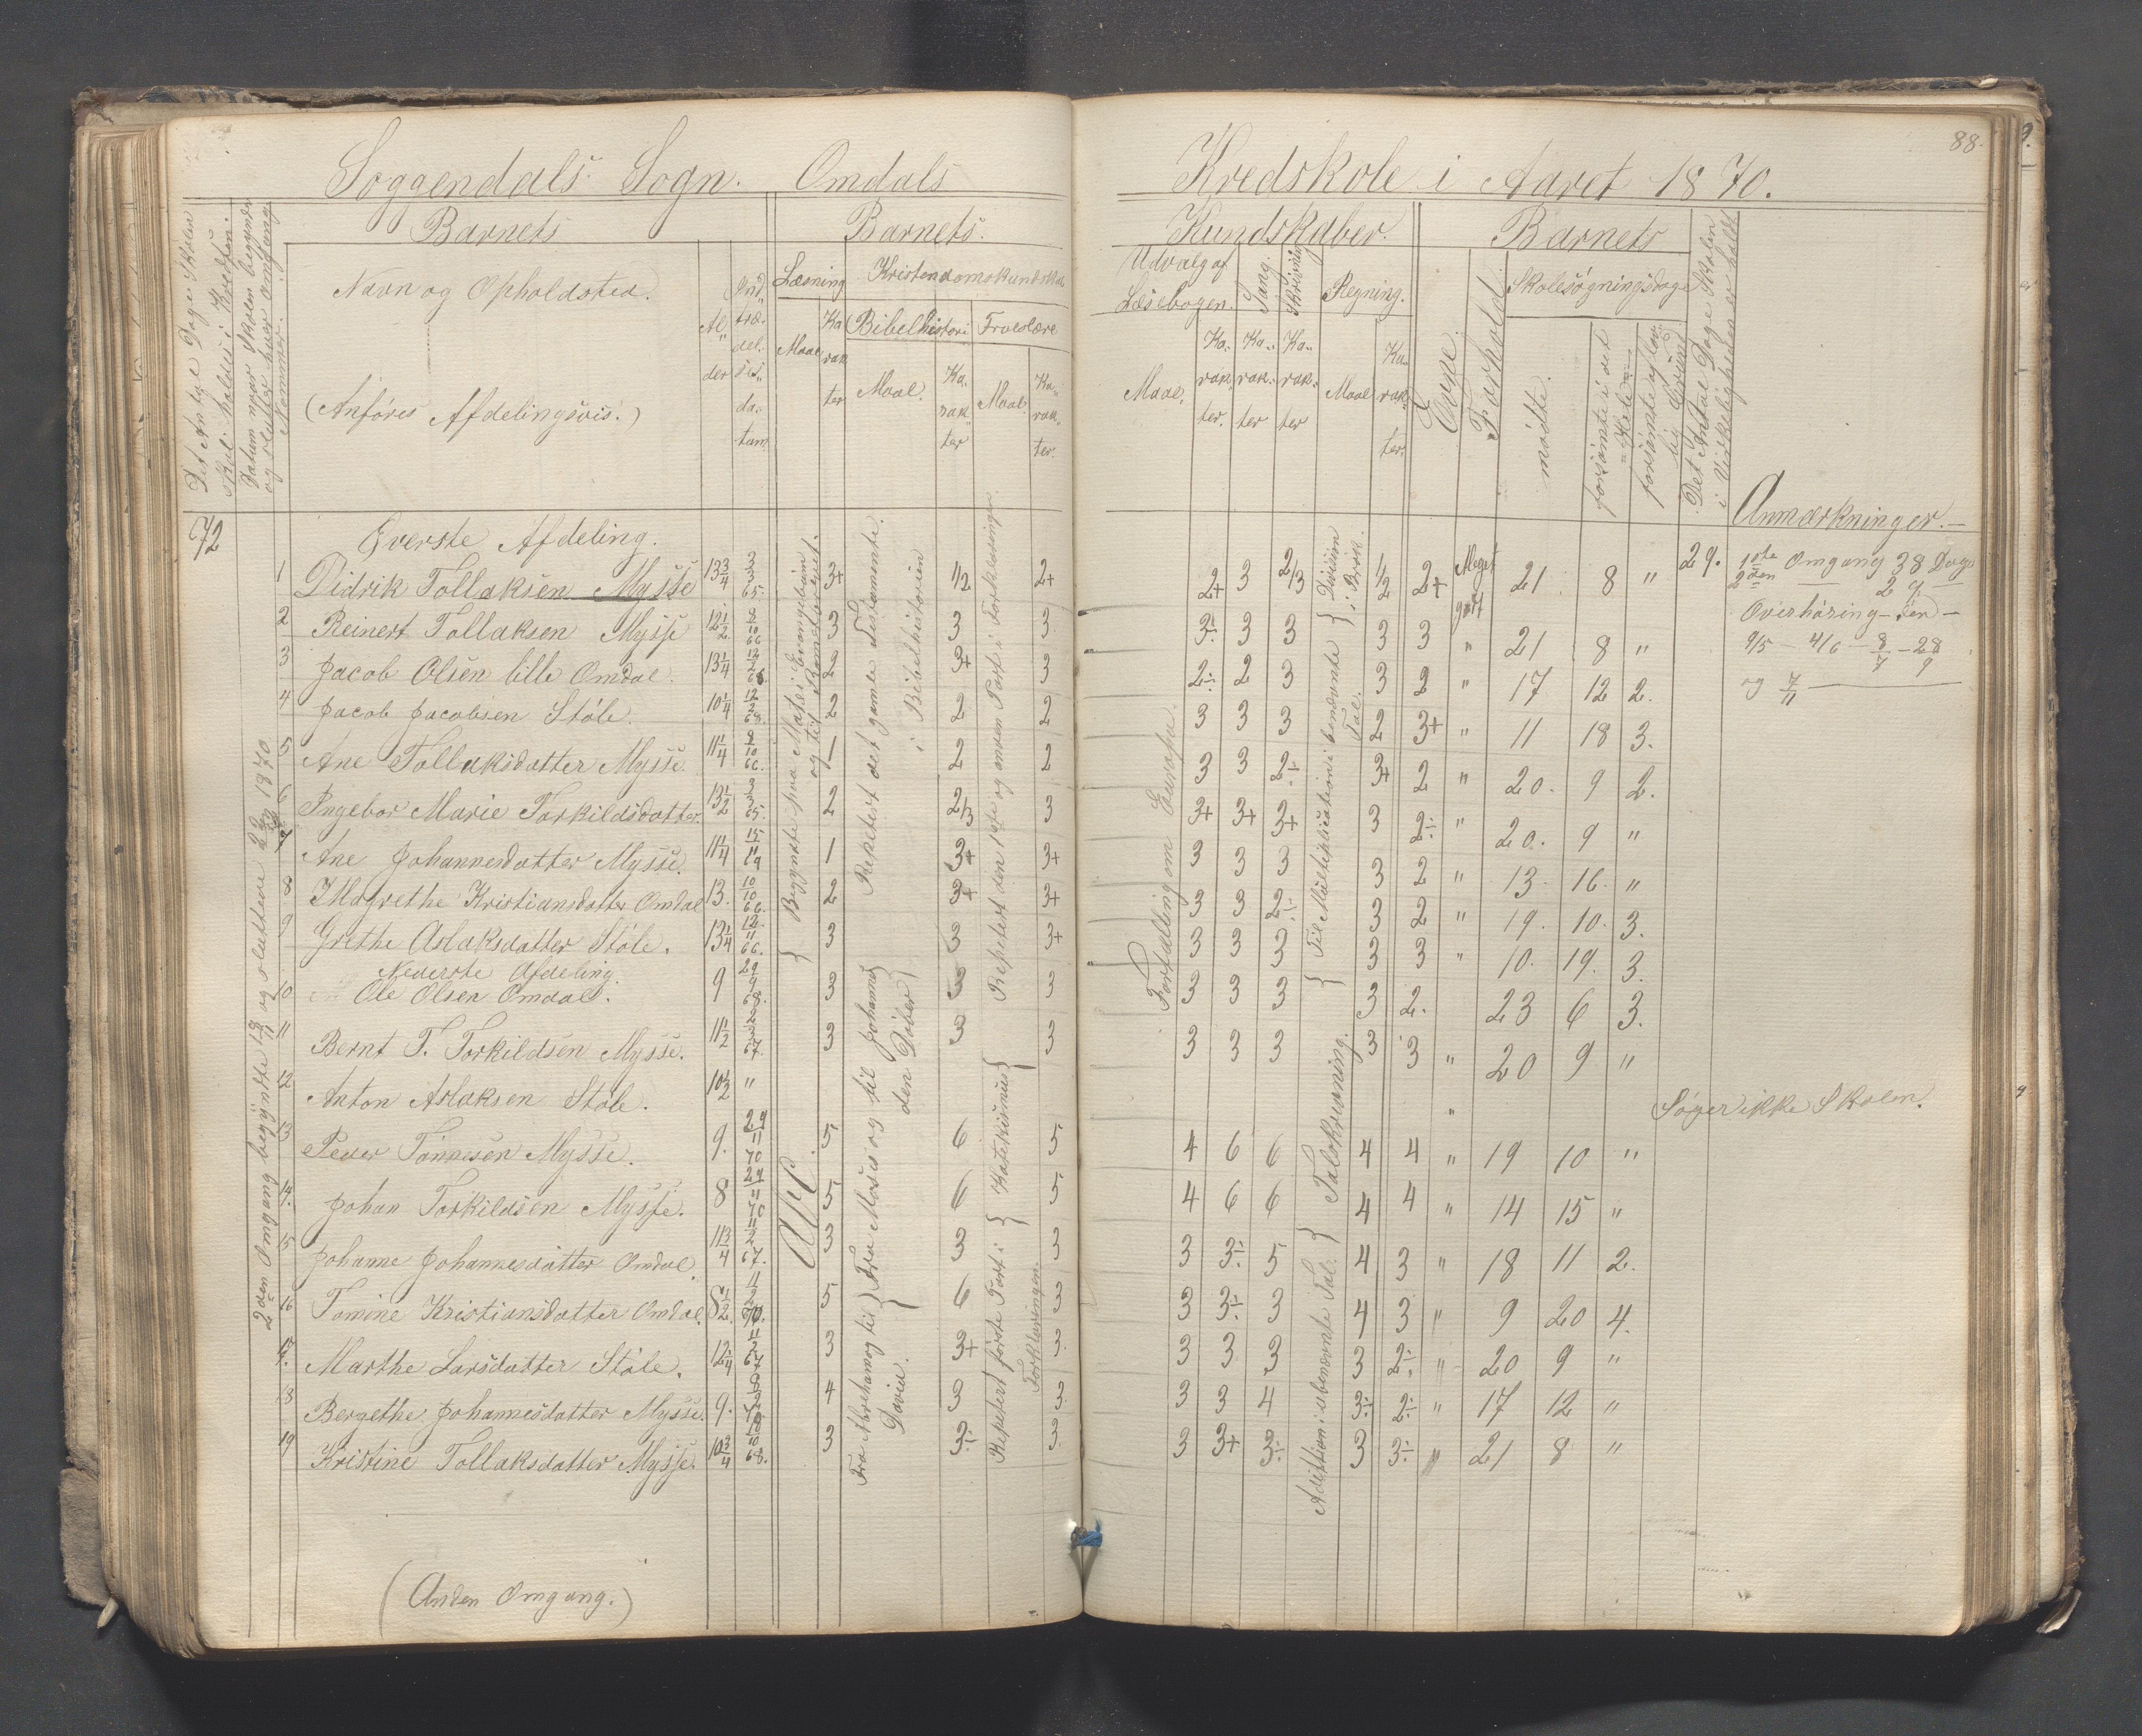 88.
Soggendals Sogn. Omdals Kredskole i Aaret 1870.
Det Antal Dage Skolen skal holdes i Kredsen.
Datum naar Skolen begynder og slutter hver Omgang.
Nommer.
Barnets
Navn og Opholdsted.
(Anføres Afdelingsvis.)
Alder
Indtrædelsesdatum
Barnets
Læsning
Maal
Karakter
Kristendomskundskab
Bibelhistori
Maal.
Karakter
Troeslære
Maal.
Karakter.
Kundskaber.
Udvalg af Læsebogen.
Maal.
Karakter.
Sang.
Karakter
Skrivning
Karakter
Regning.
Maal
Karakter.
Barnets
Evne.
Forhold.
Skolesøgningsdage
mødte.
forsømte i det Hele
forsømte af lovlig Grund
Det Antal Dage Skolen i Virkeligheden er holdt
Anmærkninger.
72
Øverste Afdeling.
1 Didrik Tollaksen Mysse 13 3/4 3/3 65. 3+ 1/2 2+ 2+ 3 2/3 1/2 2+ Meget godt 21 8 " 29.
2 Reinert Tollaksen Mysse 12 1/2 8/10 66 3 3 3 3÷ 3 3 3 3 " 21 8 "
3 Jacob Olsen lille Omdal. 13 1/4 12/2 2 3+ 3 2÷ 2 3 3 2 " 17 12 2.
4 Jacob Jacobsen Støle. 10 1/4 12/2 68. 2 2 2 3 3 3 2 3+ " 11 18 3.
5 Ane Tollaksdatter Mysse. 11 1/4 8/10 66. 1 2 2 3 3 2÷ 3+ 2 " 20. 9 2.
6 Ingebor Marie Torkildsdatter. 13 1/2 3/3 65. 2 2/3 3 3+ 3+ 3+ 3 2÷ " 20. 9 "
7 Ane Johannesdatter Mysse. 11 1/4 1 3+ 3+ 3 3 3 3 2 " 13. 16. "
8 I Magrethe Kristiansdatter Omdal 13. 10/10 66. 2 3+ 3+ 3 3 2÷ 3 2 " 19. 10. 3.
9 Grethe Aslaksdatter Støle. 13 1/4 12/11 66. 3 3 3+ 3 3 3 3 3 " 10. 19. 3.
Nederste Afdeling.
10 Ole Olsen Omdal. 9 29/9 68. 3 3 3 3 3 3 3 2. 23 6 3.
11 Bernt T. Torkildsen Mysse. 11 1/2 67. 3 3 3 3 3 3 3 3 " 20 9 "
12 Anton Aslaksen Støle. 10 1/2 " " Søger ikke Skolen.
13 Peder Tønnesen Mysse. 9. 29/11 70 5 6 5 4 6 6 4 4 " 19 10 "
14. Johan Torkildsen Mysse. 8 29/11 70 5 6 5 4 6 6 4 4 " 14 15 "
15 Johanne Johannesdatter Omdal. 11 3/4 11/2 67. 3 3 3 3 3÷ 5 4 3 " 18 11 2.
16 Tomine Kristiansdatter Omdal. 8 1/2. 11/2 70. 5 6 3 3 3÷ 3 4 3 " 9 20 4.
17. Marthe Larsdatter Støle. 12 1/4 11/2 67 3 3+ 3. 3 3 3 3 2÷ " 20 9 "
18 Bergethe Johannesdatter Mysse. 9. 4 3 3. 3 3 4 3÷ 2÷ " 17 12 "
19 Kristine Tollaksdatter Mysse. 10 3/4 10/10 68. 3 3÷ 3. 3 3+ 3÷ 3 3÷ " 21 8 "
2den Omgang begyndte og sluttede 1870
Begyndte paa Matæi Evangelium og til
ABC
Repetert det gamle Testamente i Bibelhistorien
Fra Moses og til Johannes den Døber
Fra Abraham og til David.
Repetert den 1ste og anden Part i Forklaringen
Katekismus
Repetert første Part i Forklaringen.
Fortælling om Europa.
Division i Brøk.
Til Multiplication i benævnte Tal.
Talskrivning.
Adition i ubenævnte Tal.
1ste Omgang 38 Dage
2den — 29 —
Overhøring den
9/5 – 4/6 – 8/7 – 28/9
og 7/11
(Anden Omgang.)